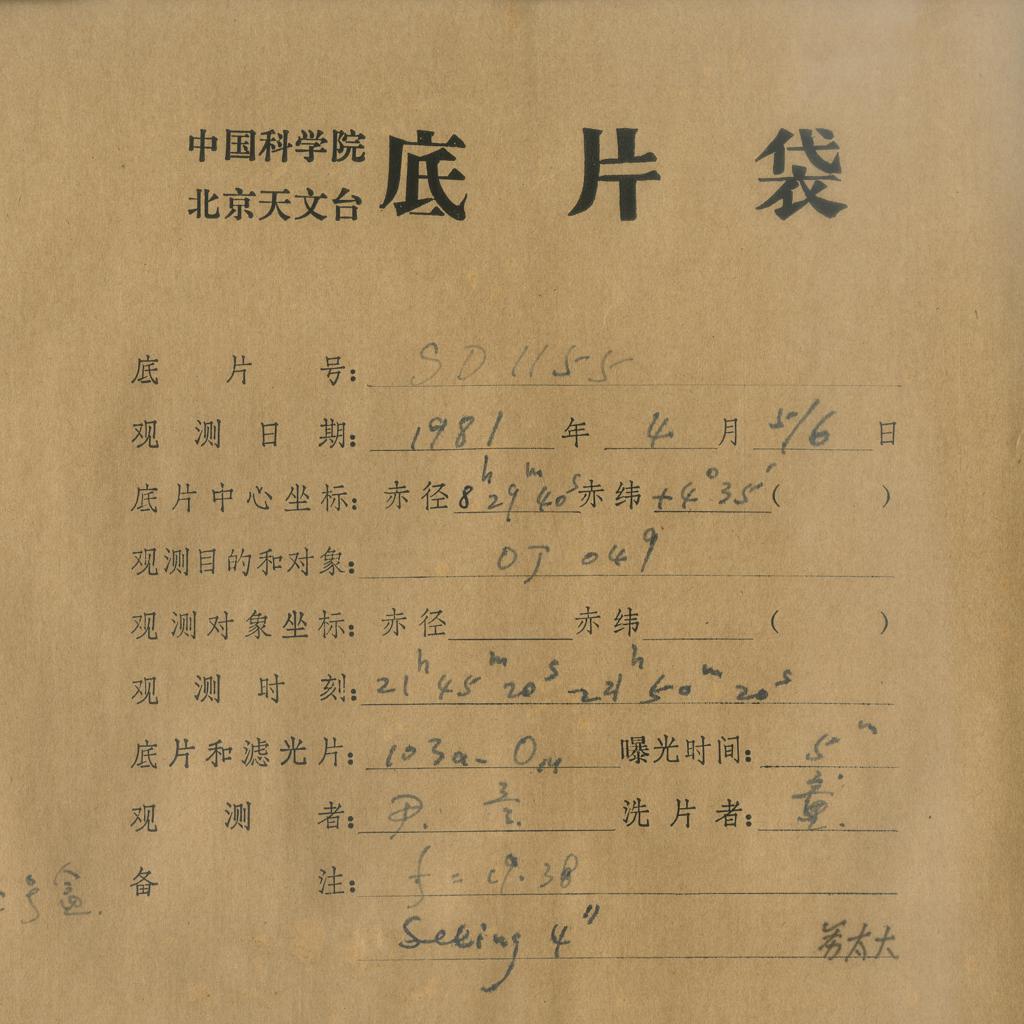 中国科学院
北京天文台
底片袋
底片号: SD1155
观测日期: 1981年4月5/6日
底片中心坐标: 赤径8h29m40s赤纬+4°35′( )
观测目的和对象: OJ 049
观测对象坐标: 赤径 赤纬 ( )
观测时刻: 21h45m20s-21h50m20s
底片和滤光片: 103a-O 曝光时间: 5m
观测者: 洗片者:
备注: f = 19.38
Seeing 4″